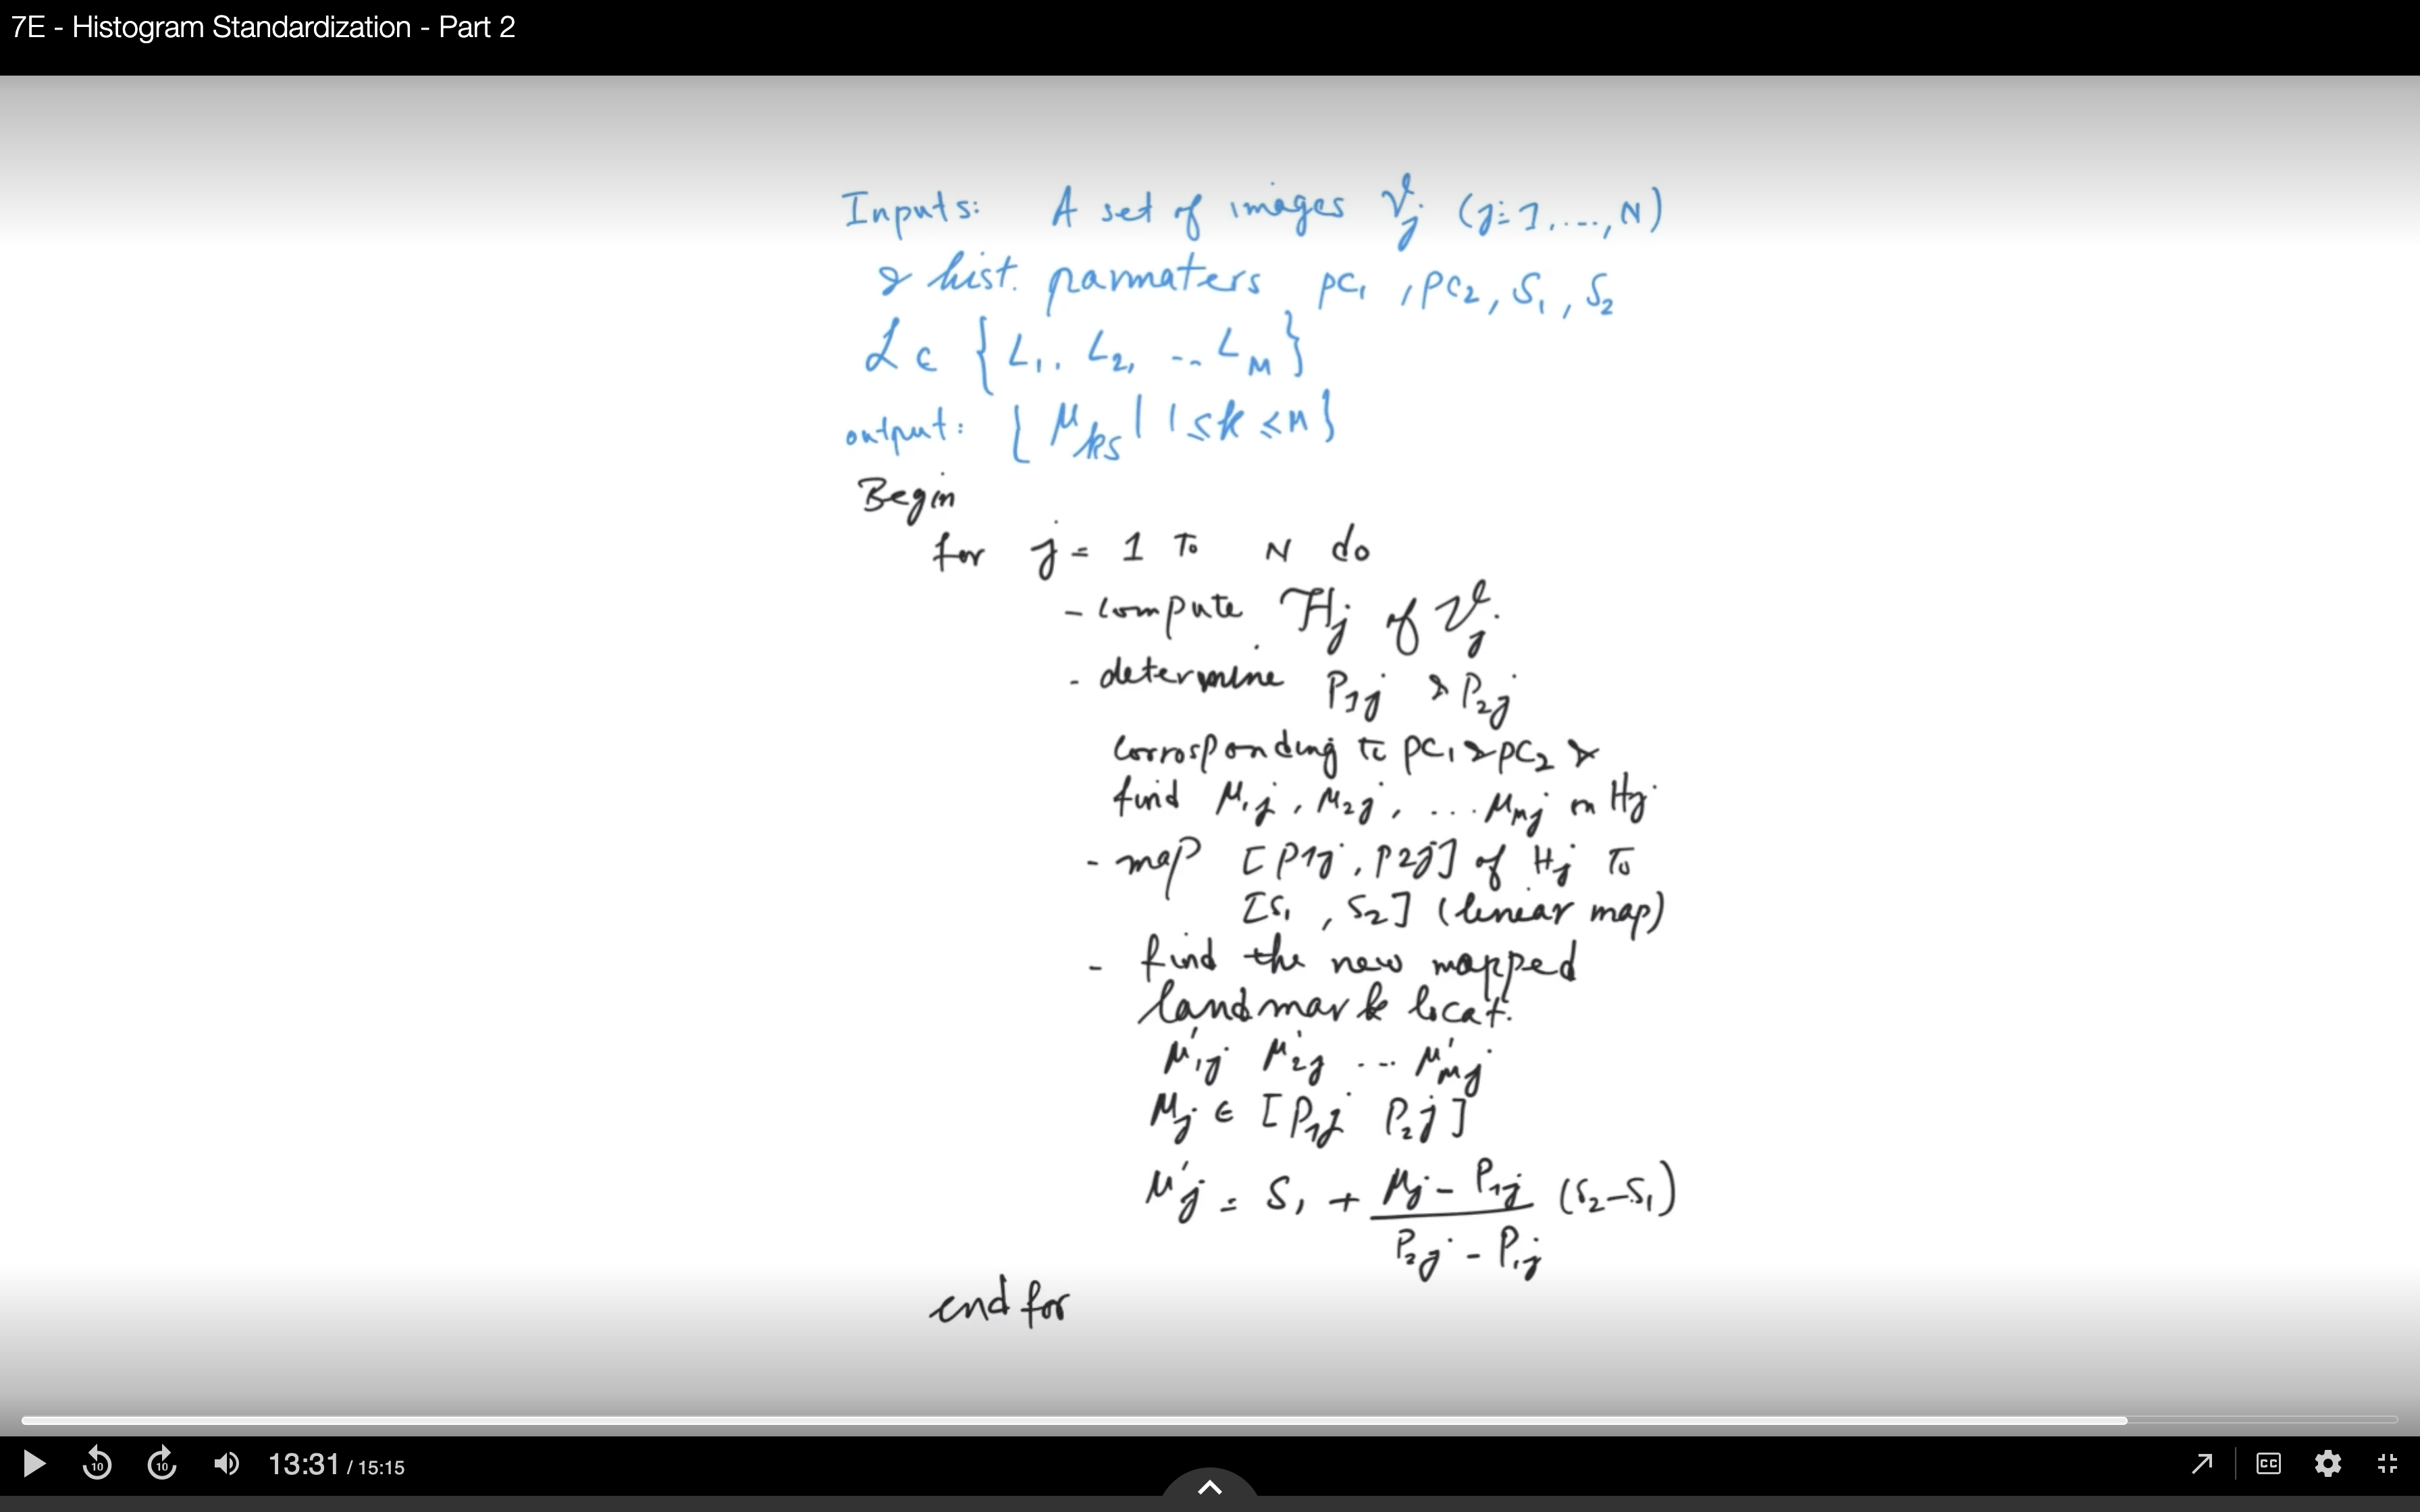 7E - Histogram Standardization - Part 2
Inputs: A set of images 𝒱j (j=1,...,N)
& hist. parmaters pc1, pc2, S1, S2
ℒ ⊂ {L1, L2, ... LM}
output: {μks | 1≤k≤M}
Begin
for j = 1 To N do
- compute ℋj of 𝒱j
- determine P1j & P2j
Corrosponding to pc1 & pc2 &
find μ1j, μ2j, ... μMj on Hj
- map [P1j, P2j] of Hj To
[S1, S2] (linear map)
- find the new mapped
landmark locat.
μ'1j μ'2j ... μ'Mj
μj ∈ [P1j P2j]
μ'j = S1 + (μj - P1j) / (P2j - P1j) (S2-S1)
end for
10 10 13:31 / 15:15 CC